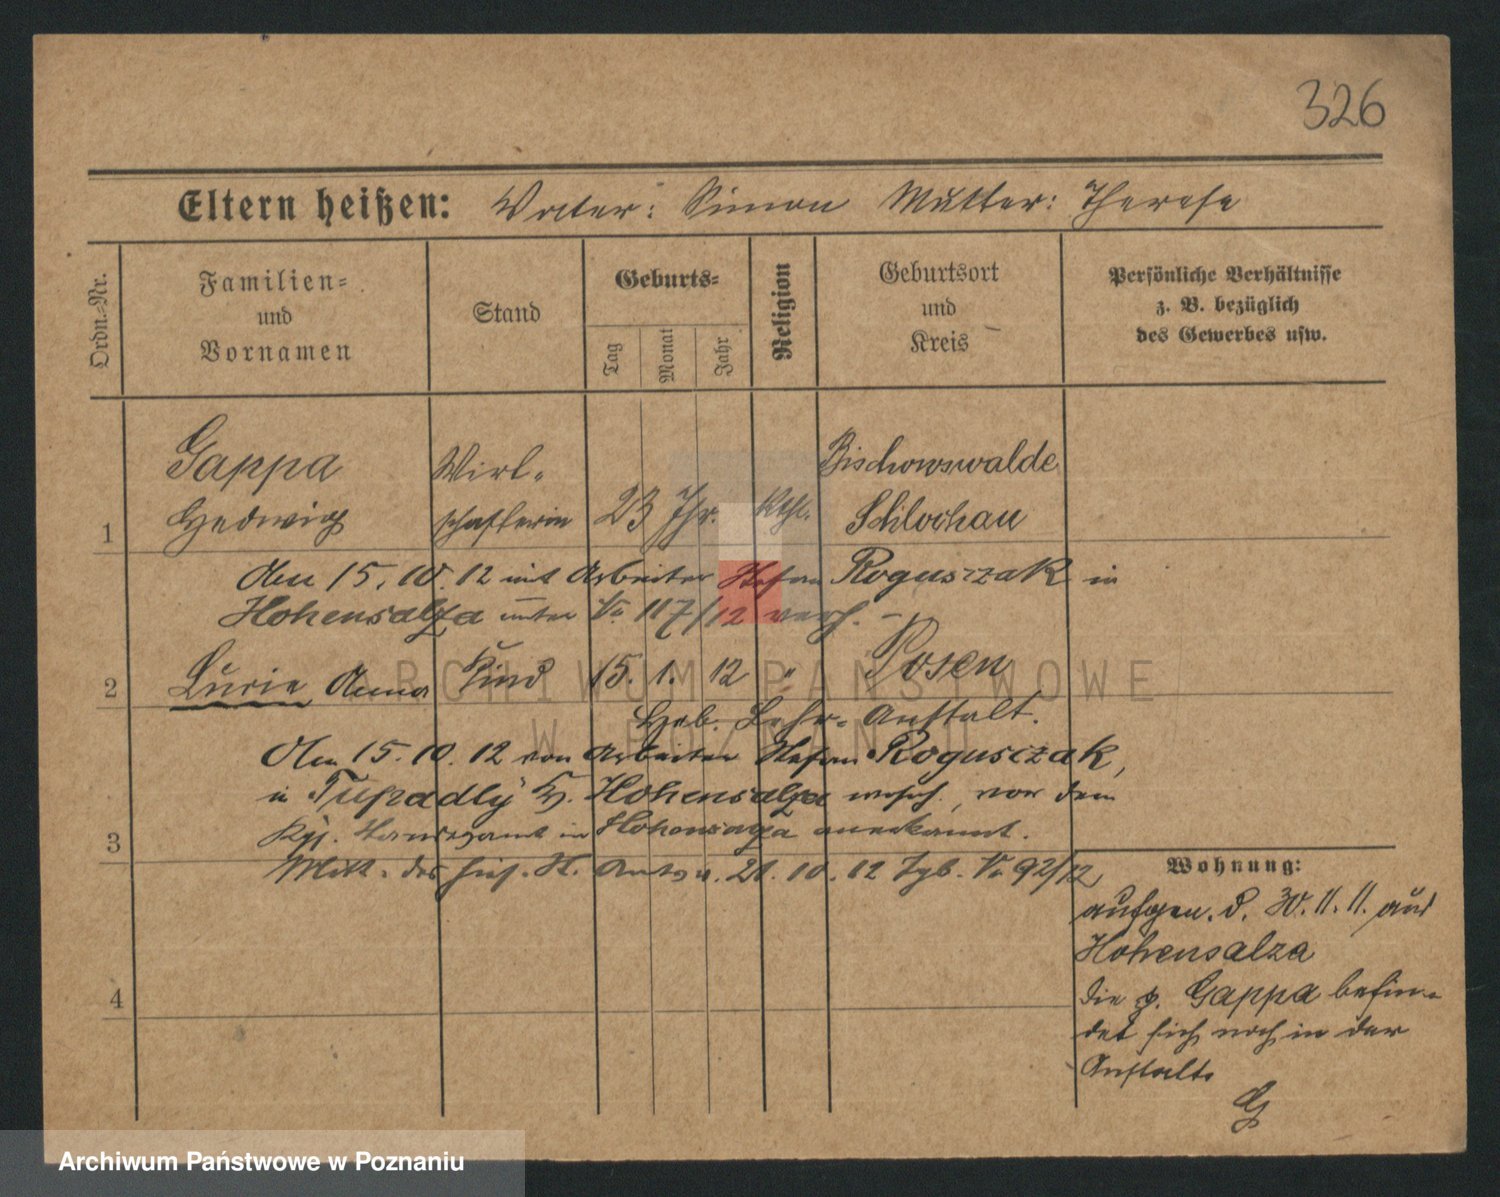 326
Eltern heißen: Vater: Simon Mutter: Therese
Ordn.-Nr.
Familien-
und
Vornamen
Stand
Geburts-
Tag
Monat
Jahr
Religion
Geburtsort
und
Kreis
Persönliche Verhältnisse
z. B. bezüglich
des Gewerbes usw.
Gappa Wirt- Bischowswalde
1 Hedwig schafterin 23 Jhr. Kth. Schlochau
Am 15.10.12 mit Arbeiter Stefan Roguszczak in
Hohensalza unter No 117/12 verh. -
2 Lucie Anna Kind 15. 1. 12 " Posen
Heb. Lehr-Anstalt.
Am 15.10.12 von Arbeiter Stefan Rogusczak,
in Tupadly Kr. Hohensalza , vor dem
3 Kgl. Standesamt in Hohensalza anerkannt.
Mitt. des St. Amts v. 21.10.12 Tgb. No 92/12
4
Wohnung:
aufgen. d. 30.11.11. aus
Hohensalza
die p. Gappa befin-
det sich noch in der
Anstalt.
G
ARCHIWUM PAŃSTWOWE
W POZNANIU
Archiwum Państwowe w Poznaniu